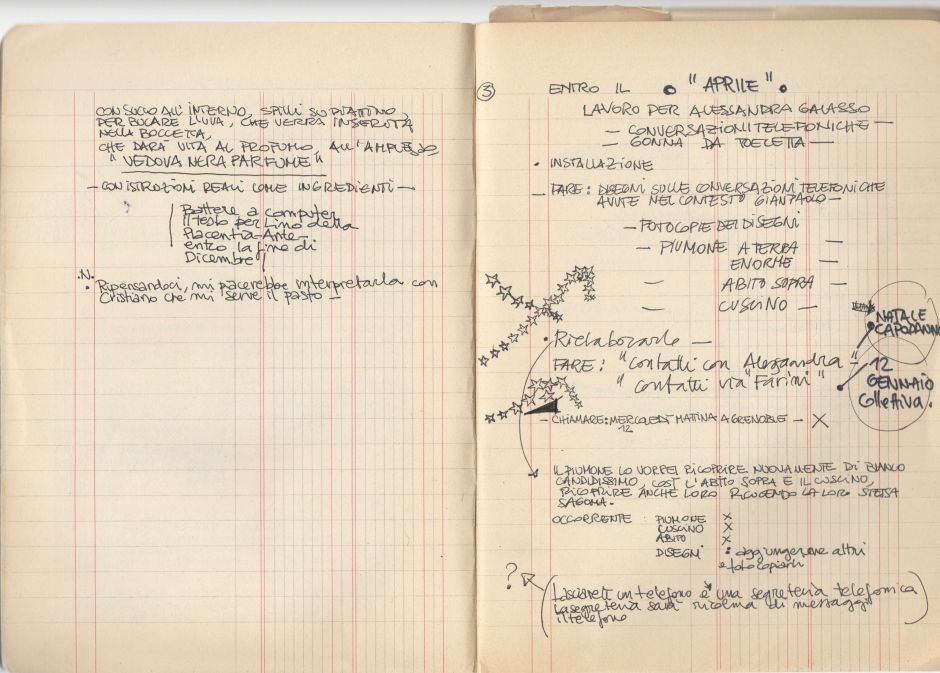 CON SUCCO ALL'INTERNO, SPILLI SU PIATTINO,
PER BUCARE L'UVA, CHE VERRÀ INSERITA
NELLA BOCCETTA,
CHE DARÀ VITA AL PROFUMO, ALL'AMPLESSO,
"VEDOVA NERA PARFUME"
— CONISTRUZIONI REALI COME INGREDIENTI —
Battere a computer
il testo per Lino della
Placentia-Ante-
entro la fine di
Dicembre
.N.
• Ripensandoci, mi piacerebbe interpretarla con
Cristiano che mi serve il pasto —
③ ENTRO IL • "APRILE" •
LAVORO PER ALESSANDRA GALASSO
— CONVERSAZIONI TELEFONICHE —
— GONNA DA TOELETTA —
• INSTALLAZIONE
— FARE: DISEGNI SULLE CONVERSAZIONI TELEFONICHE
AVUTE NEL CONTESTO GIANPAOLO —
— FOTOCOPIE DEI DISEGNI
— PIUMONE A TERRA —
ENORME —
— ABITO SOPRA —
— CUSCINO —
NATALE
CAPODANNO
• Rielaborarle —
FARE: "Contatti con Alessandra —"
" contatti via "Farini"
12
GENNAIO
Collettiva.
— CHIAMARE: MERCOLEDÌ MATTINA A GRENOBLE — X
12
IL PIUMONE LO VORREI RICOPRIRE NUOVAMENTE DI BIANCO
CANDIDISSIMO, COSÌ L'ABITO SOPRA E IL CUSCINO,
RICOPRIRE ANCHE LORO RICUCENDO LA LORO STESSA
SAGOMA.
OCCORRENTE : PIUMONE X
CUSCINO X
ABITO X
DISEGNI : aggiungerne altri
e fotocopiarli
? (Lascierei un telefono e una segreteria telefonica
La segreteria sarà ricolma di messaggi
il telefono)